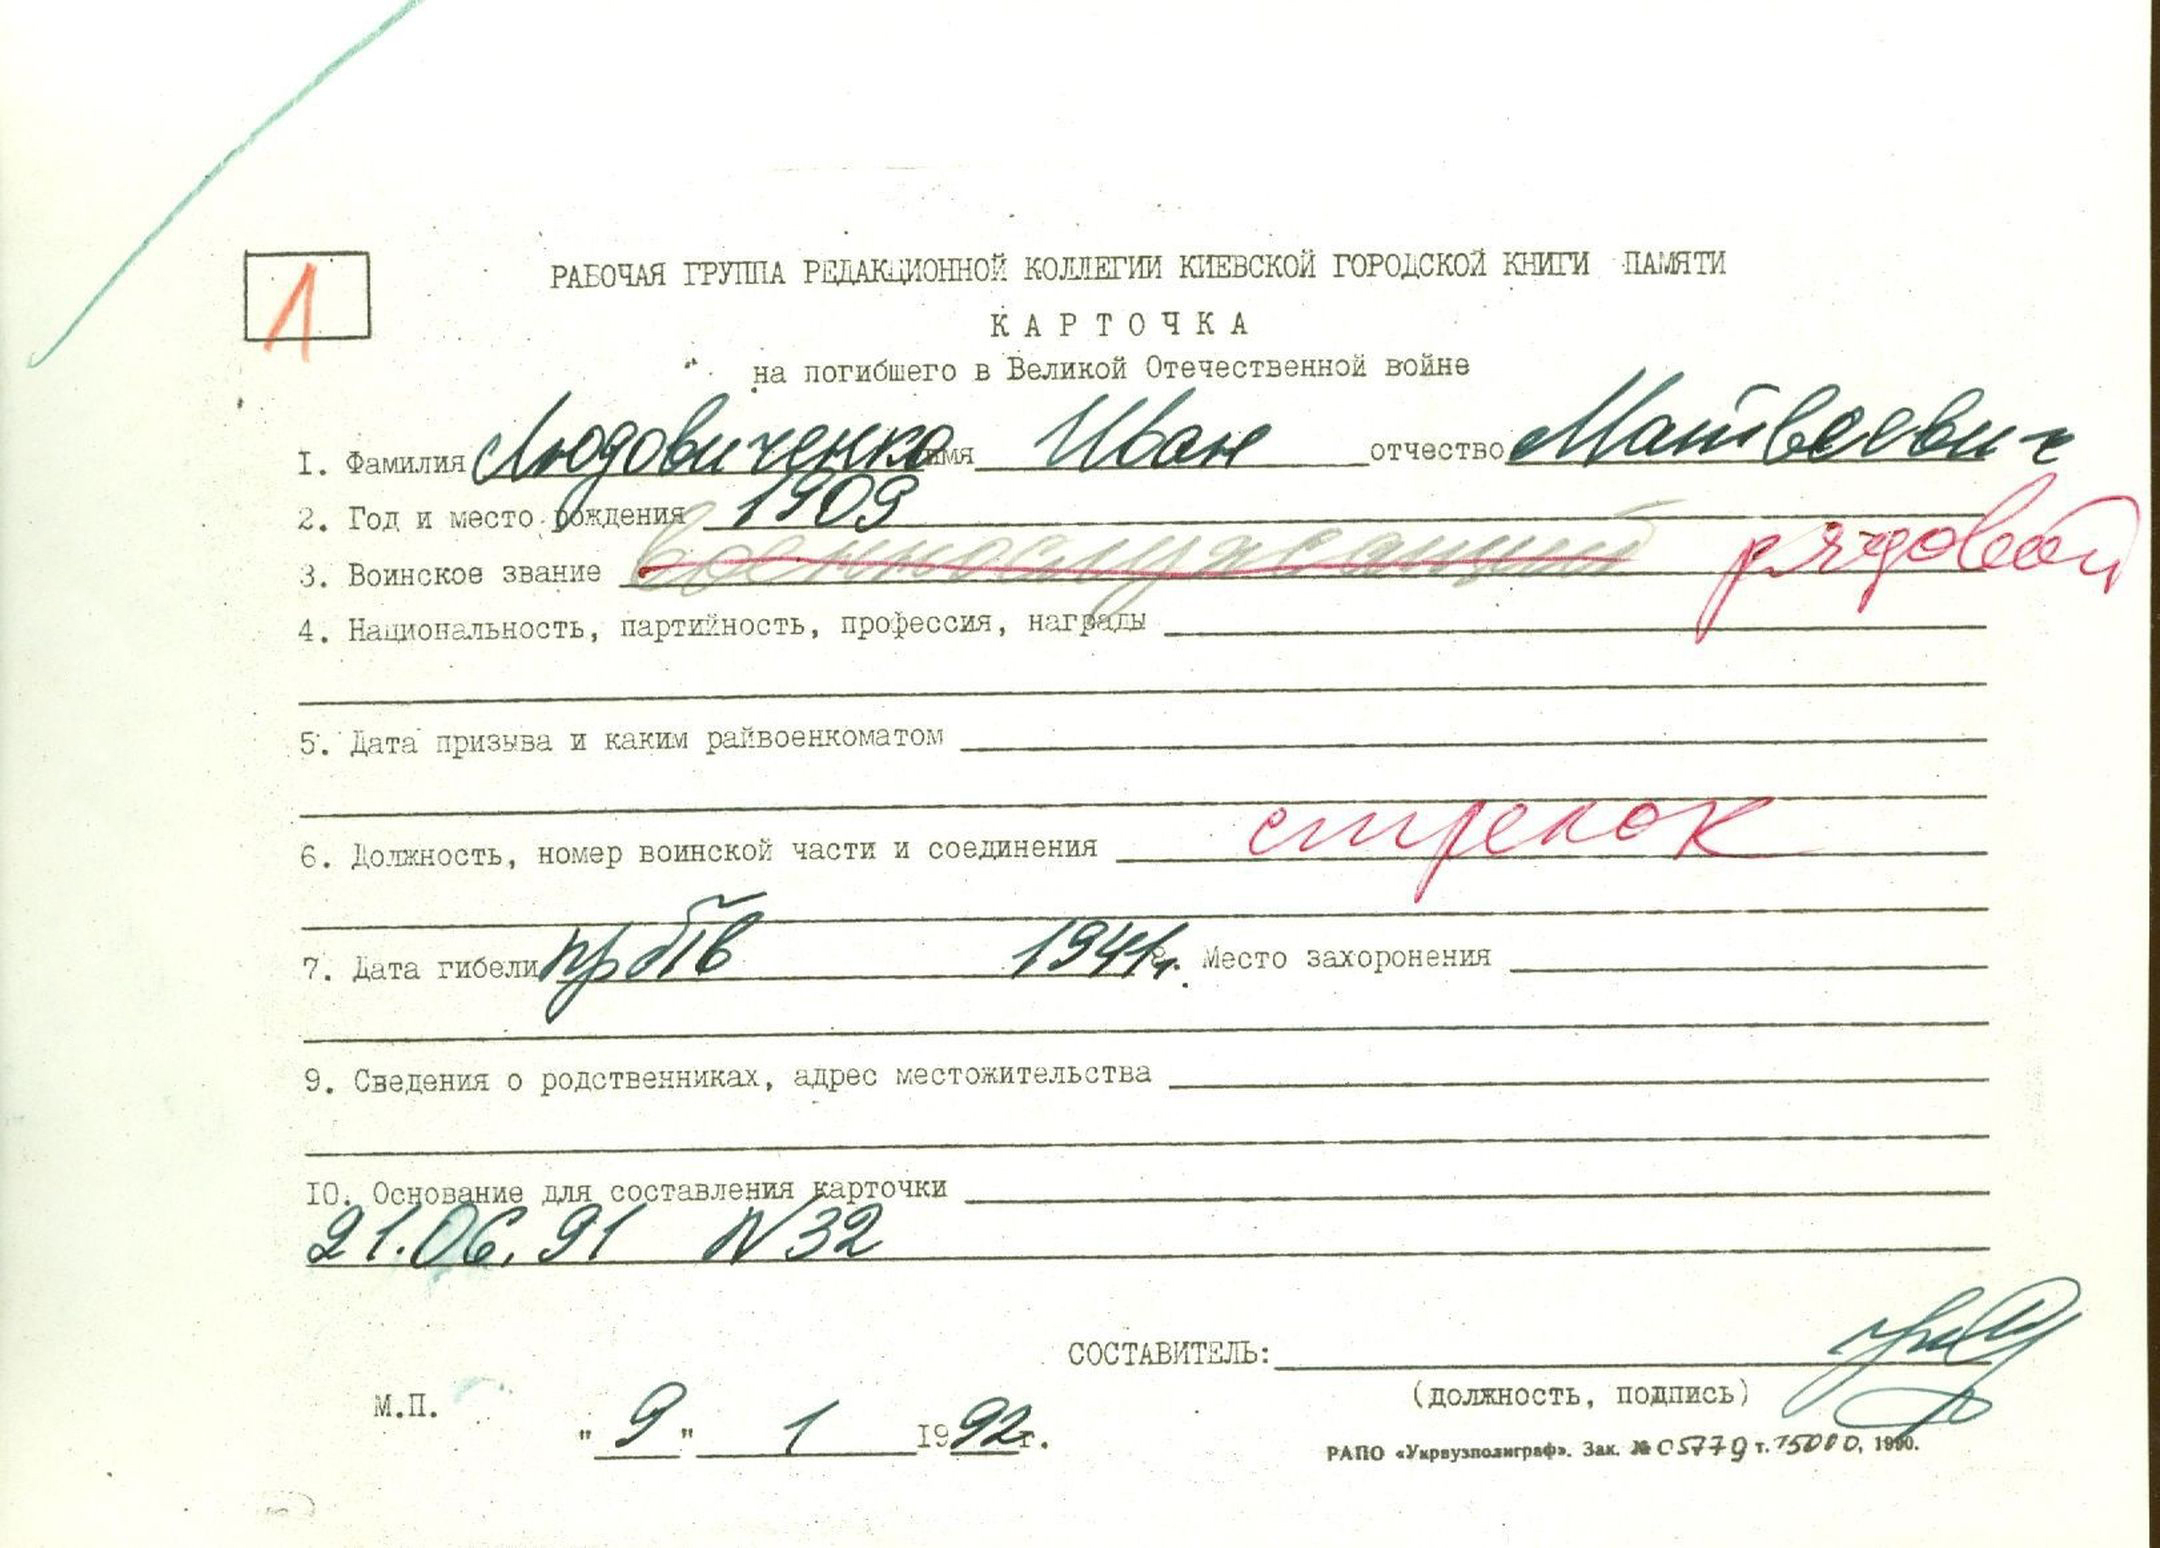 1
РАБОЧАЯ ГРУППА РЕДАКЦИОННОЙ КОЛЛЕГИИ КИЕВСКОЙ ГОРОДСКОЙ КНИГИ ПАМЯТИ
КАРТОЧКА
на погибшего в Великой Отечественной войне
1. Фамилия Людовиченко имя Иван отчество Матвеевич
2. Год и место рождения 1909
3. Воинское звание военнослужащий рядовой
4. Национальность, партийность, профессия, награды
5. Дата призыва и каким райвоенкоматом
6. Должность, номер воинской части и соединения стрелок
7. Дата гибели пр б/в 1941г. Место захоронения
9. Сведения о родственниках, адрес местожительства
10. Основание для составления карточки
21.06.91 N32
СОСТАВИТЕЛЬ:
(должность, подпись)
М.П.
"9" 1 1992г.
РАПО «Укрвузполиграф». Зак. № 05779 т. 15000, 1990.